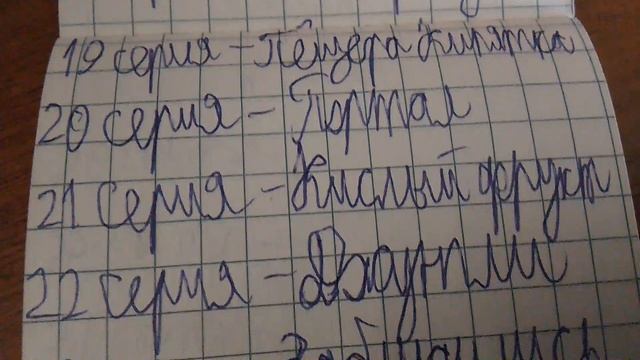 19 серия - Пещера Кирятка
20 серия - Портал
21 серия - Кислый фрукт
22 серия - Джунгли